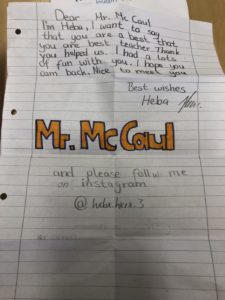 Dear, Mr. Mc Caul
I'm Heba, I want to say
that you are a best that
you are best teacher. Thank
you helped us. I had a lots
of fun with you. I hope you
cam back. Nice to meet you
Best wishes
Heba
Mr. Mc Caul
and please follow me
on instagram